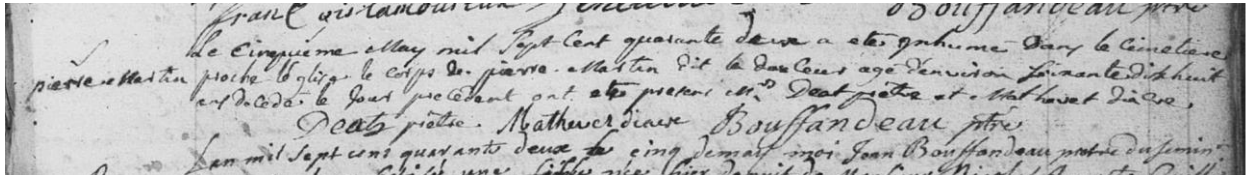 Bouffandeau ptre
Le Cinquiéme May mil Sept Cent quarante deux a eté Inhumé Dans le Cimetiere
pierre Martin proche l'eglise le corps de pierre Martin dit le agé denviron Soixante dixhuit
ans decedé le Jour precedent ont eté presens Mrs Deat prêtre et Mathevet diacre
Deat prêtre Mathevet diacre Bouffandeau ptre
Lan mil Sept cens quarante deux le cinq de may moi Jean Bouffandeau pretre du Semin.
une fille née hier